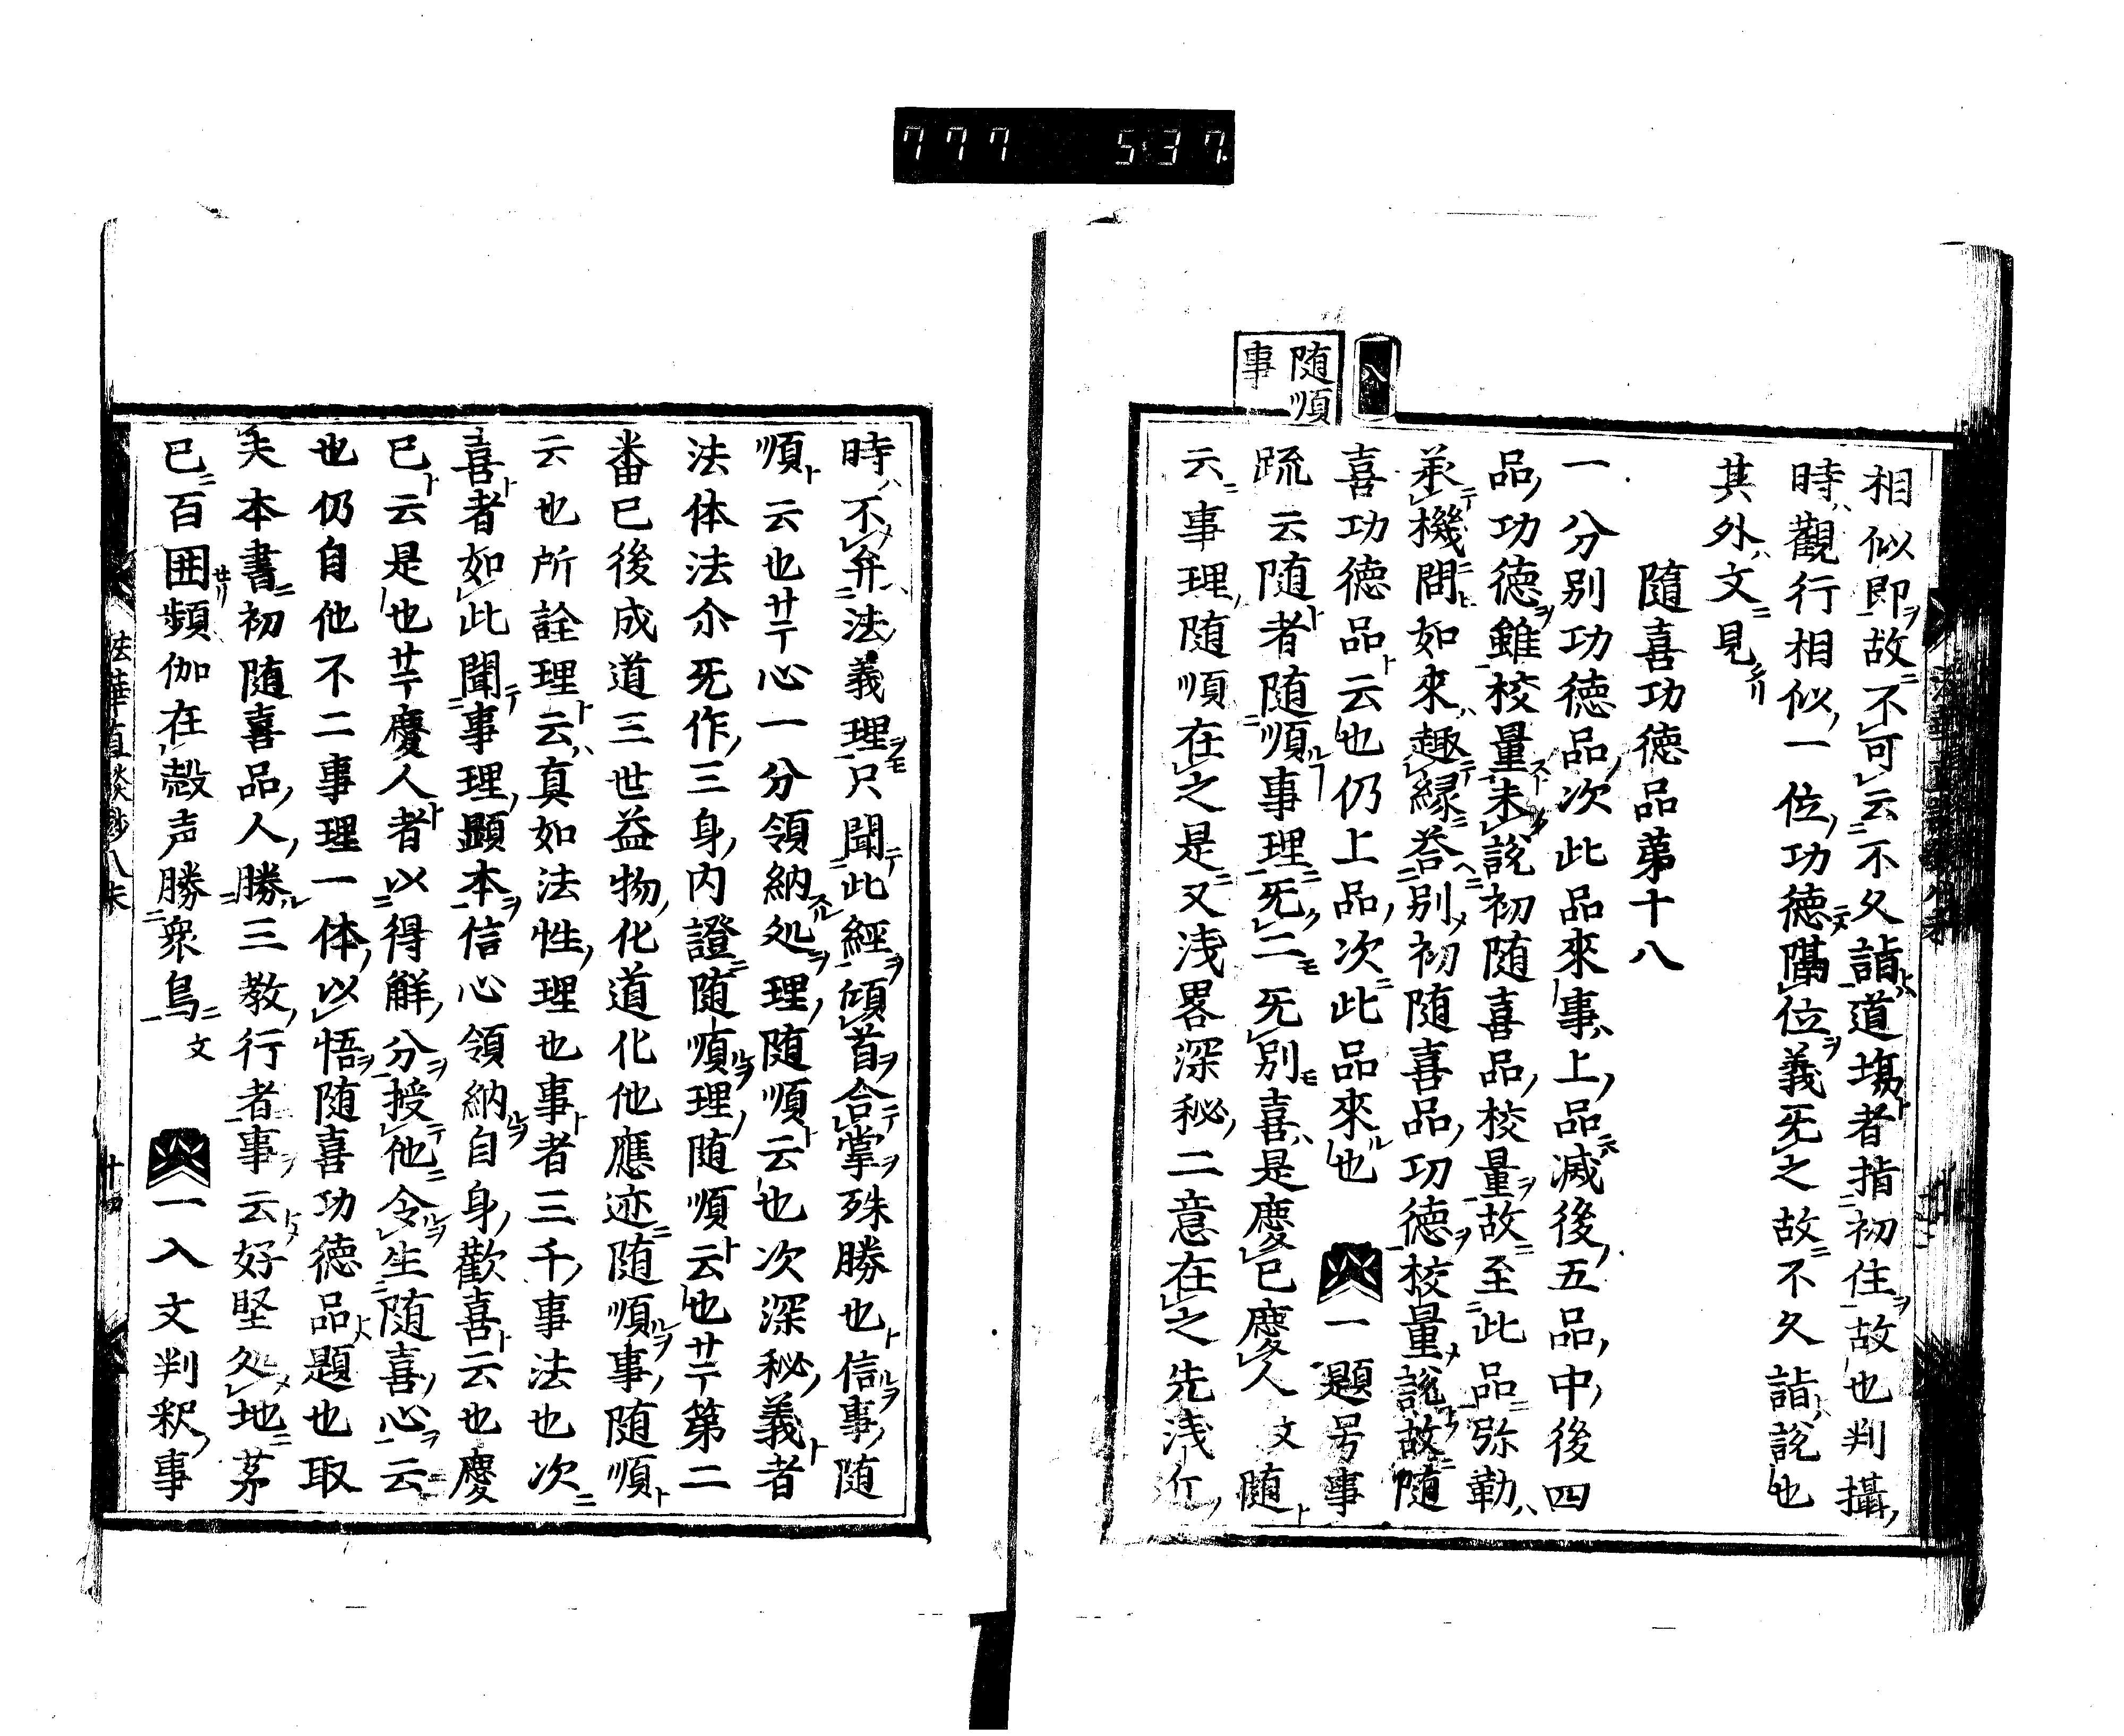 777 537
八
随順
事
相似即故不可云不久詣道場者指初住故也判攝
時觀行相似一位功徳隔位義旡之故不久詣説也
其外文見
隨喜功徳品第十八
一分別功徳品次此品來事上品滅後五品中後四
品功徳雖校量未説初随喜品校量故至此品弥勒
承機問如來趣縁荅別初随喜品功徳校量説故随
喜功徳品云也仍上品次此品來也 一題号事
疏云随者随順事理旡二旡別喜是慶已慶人文随
云事理随順在之是又浅畧深秘二意在之先浅
時不弁法義理只聞此經傾首合掌殊勝也信事随
順云也廿丁心一分領納処理随順云也次深秘義者
法体法尒旡作三身内證随順理随順云也廿丁第二
畨已後成道三世益物化道化他應迹随順事随順
云也所詮理云真如法性理也事者三千事法也次
喜者如此聞事理顕本信心領納自身歡喜云也慶
已云是也廿丁慶人者以得解分授他令生随喜心云
也仍自他不二事理一体以悟随喜功徳品題也取
矣本書初随喜品人勝三教行者事云好堅処地芽
已百囲頻伽在㲉声勝衆鳥文 一入文判釈事
法華直談鈔八末 十四